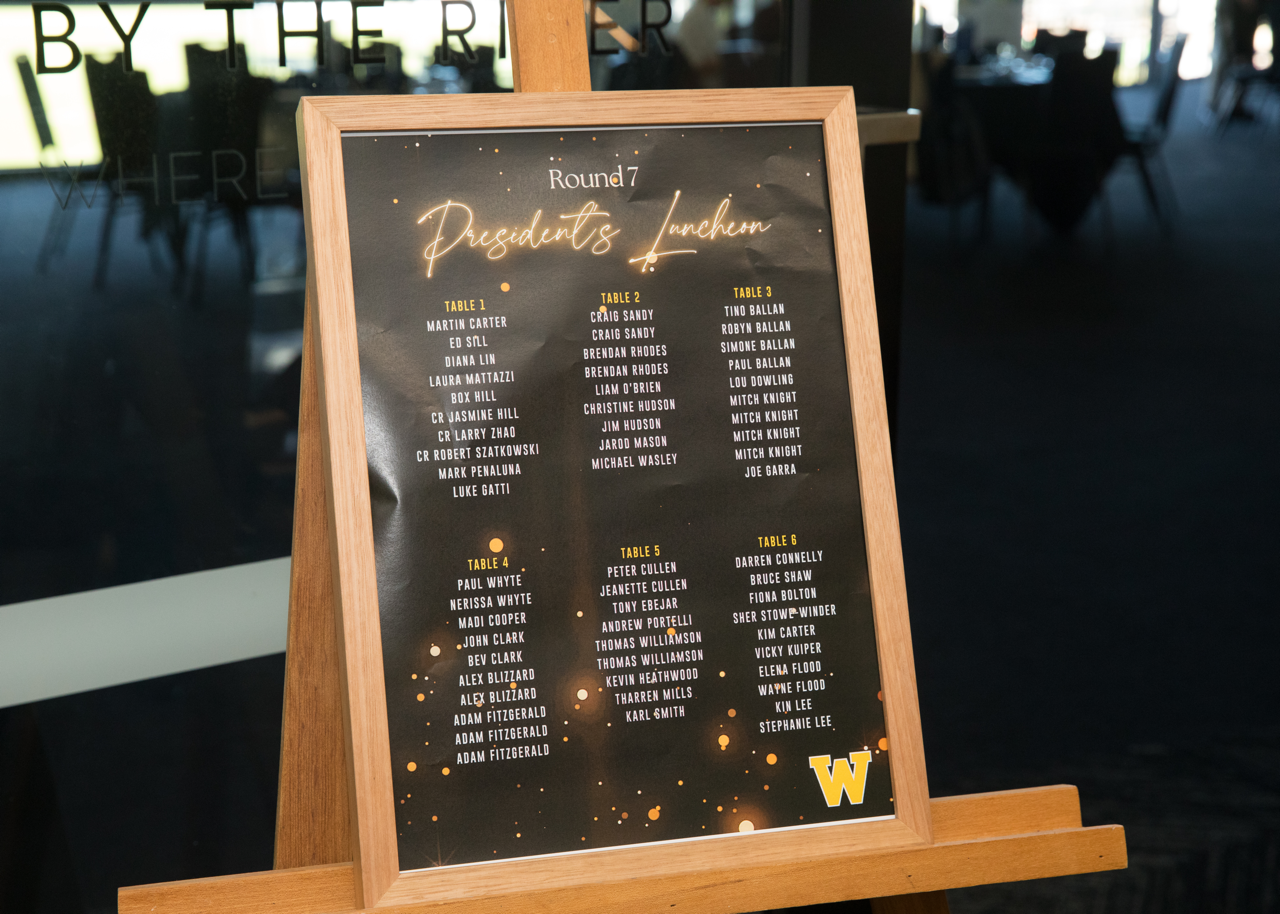 BY THE RIVER
WHERE
Round 7
President's Luncheon
TABLE 1
MARTIN CARTER
ED SILL
DIANA LIN
LAURA MATTAZZI
BOX HILL
CR JASMINE HILL
CR LARRY ZHAO
CR ROBERT SZATKOWSKI
MARK PENALUNA
LUKE GATTI
TABLE 2
CRAIG SANDY
CRAIG SANDY
BRENDAN RHODES
BRENDAN RHODES
LIAM O'BRIEN
CHRISTINE HUDSON
JIM HUDSON
JAROD MASON
MICHAEL WASLEY
TABLE 3
TINO BALLAN
ROBYN BALLAN
SIMONE BALLAN
PAUL BALLAN
LOU DOWLING
MITCH KNIGHT
MITCH KNIGHT
MITCH KNIGHT
MITCH KNIGHT
JOE GARRA
TABLE 4
PAUL WHYTE
NERISSA WHYTE
MADI COOPER
JOHN CLARK
BEV CLARK
ALEX BLIZZARD
ALEX BLIZZARD
ADAM FITZGERALD
ADAM FITZGERALD
ADAM FITZGERALD
TABLE 5
PETER CULLEN
JEANETTE CULLEN
TONY EBEJAR
ANDREW PORTELLI
THOMAS WILLIAMSON
THOMAS WILLIAMSON
KEVIN HEATHWOOD
THARREN MILLS
KARL SMITH
TABLE 6
DARREN CONNELLY
BRUCE SHAW
FIONA BOLTON
SHER STOWE-WINDER
KIM CARTER
VICKY KUIPER
ELENA FLOOD
WAYNE FLOOD
KIN LEE
STEPHANIE LEE
W